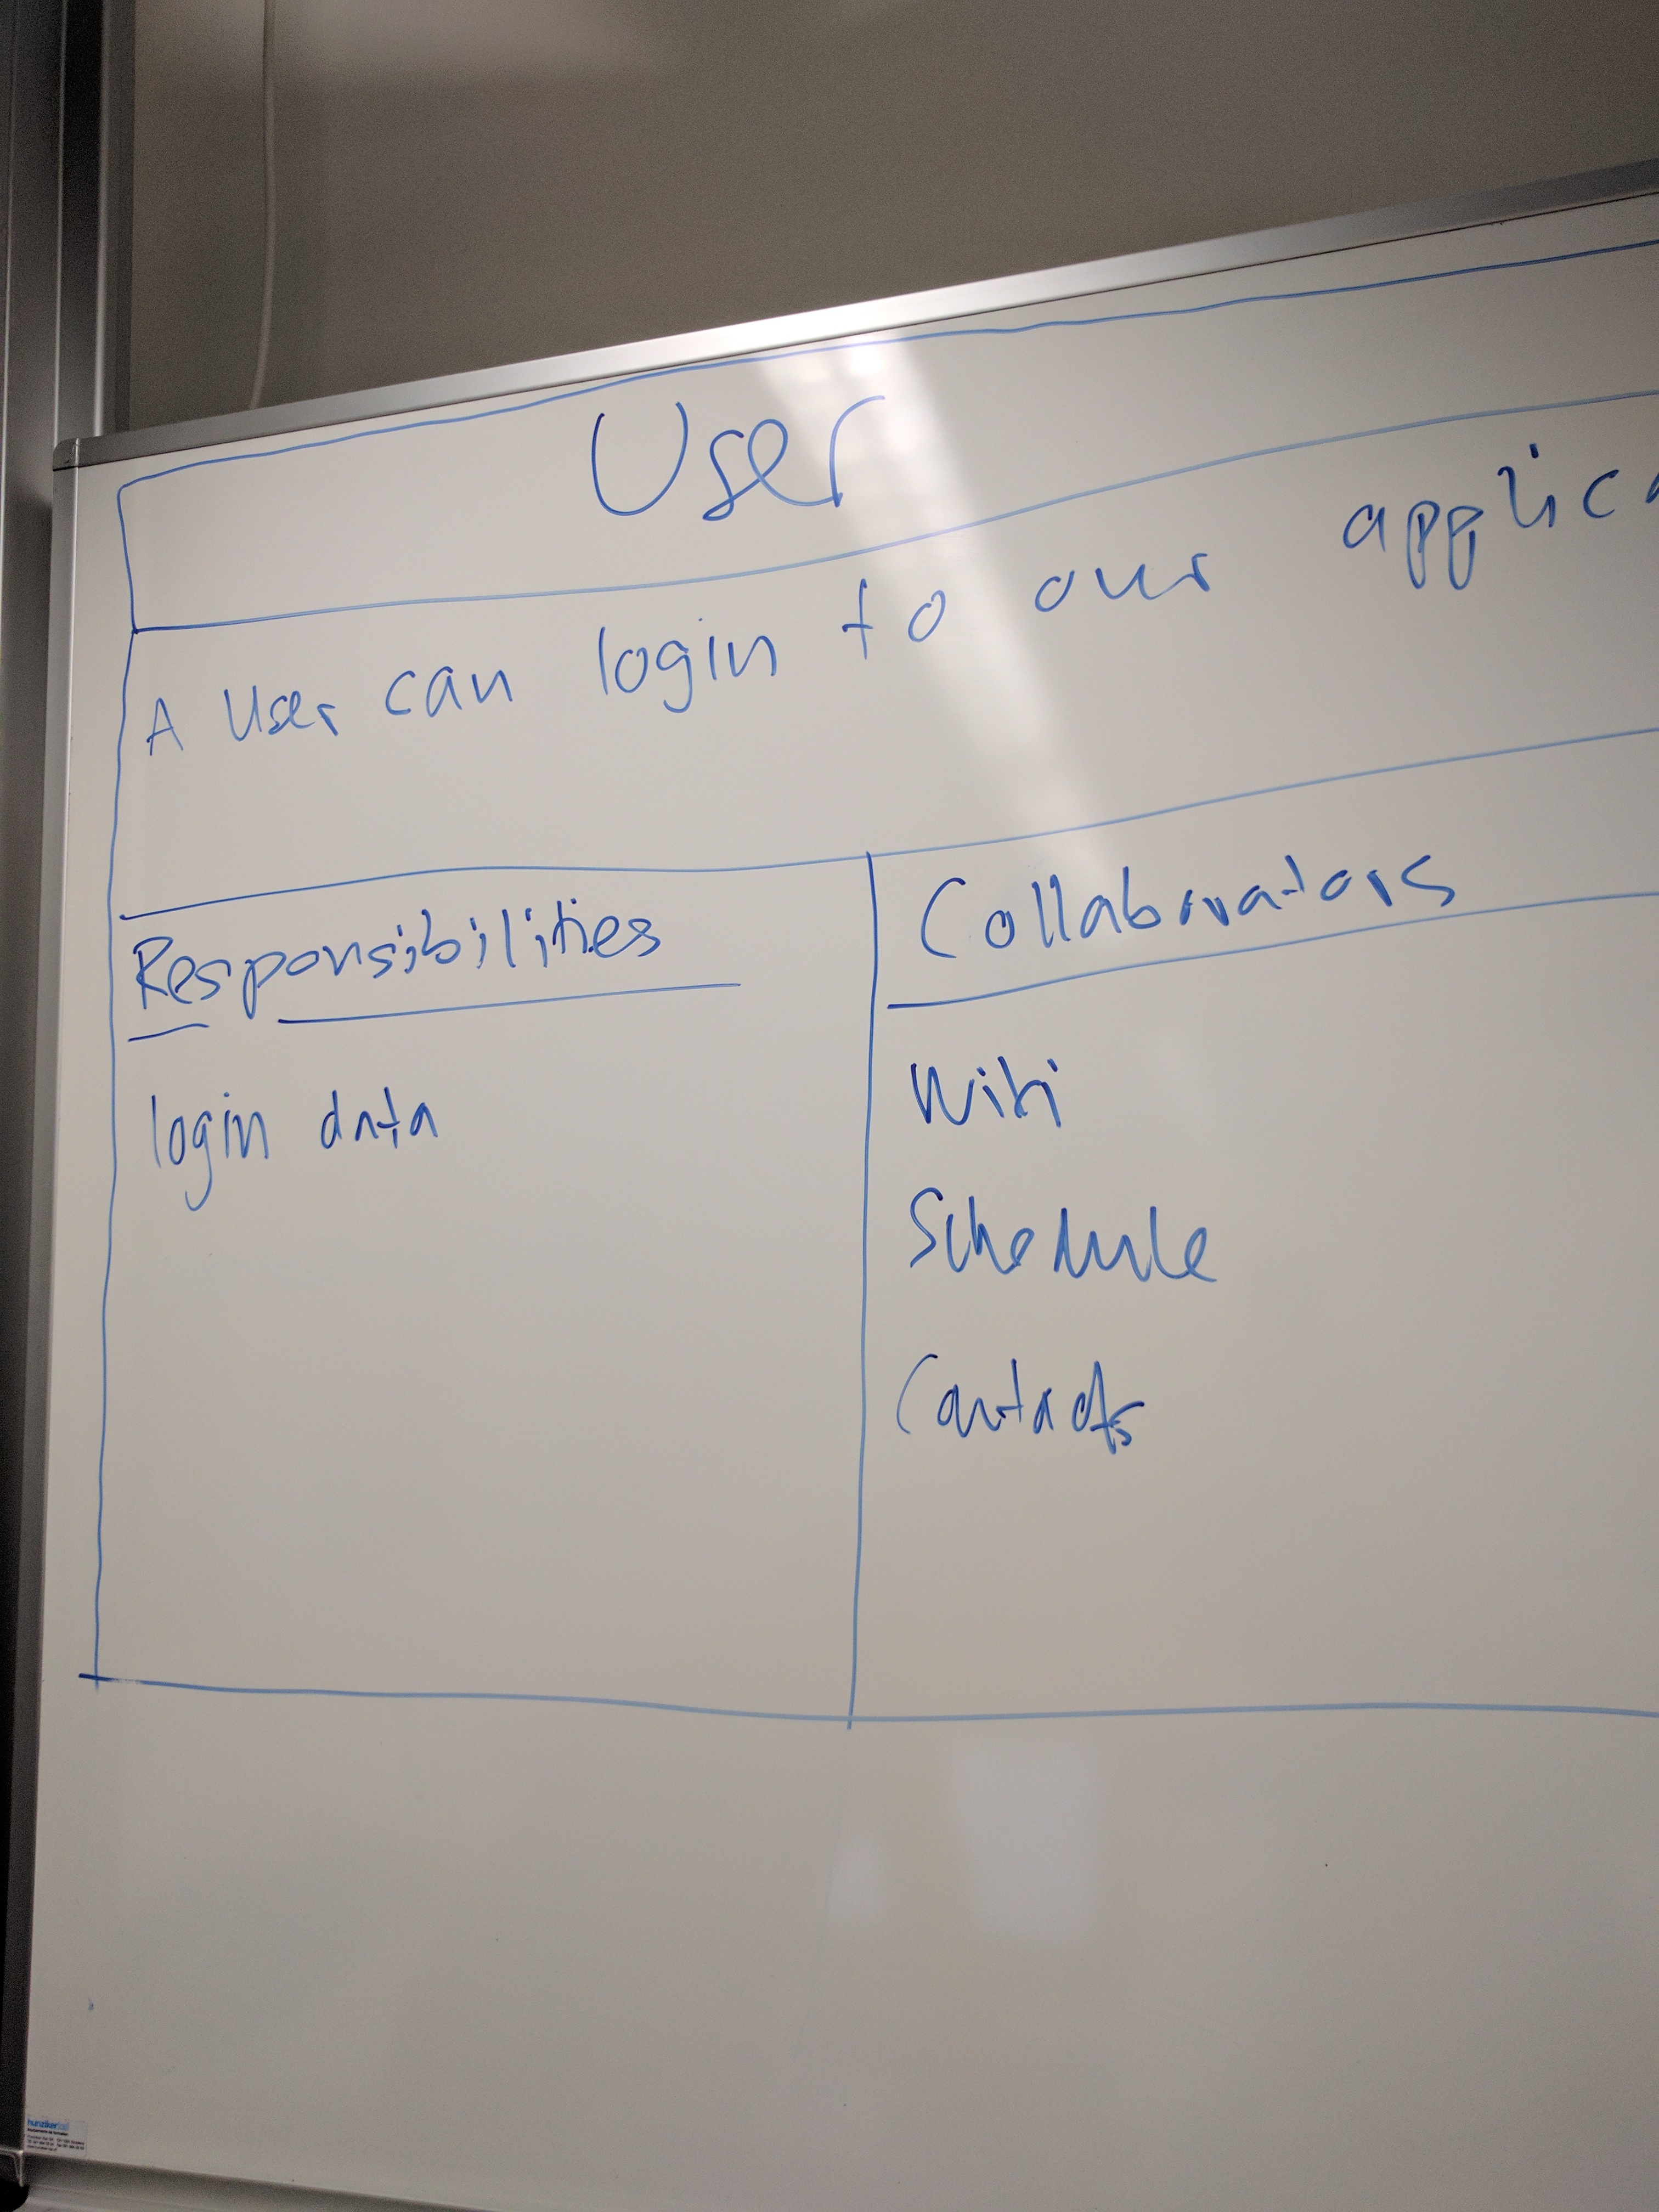 User
A User can login to our applica
Responsibilities
Collaborators
login data
Wiki
Schedule
Contacts
hunziker